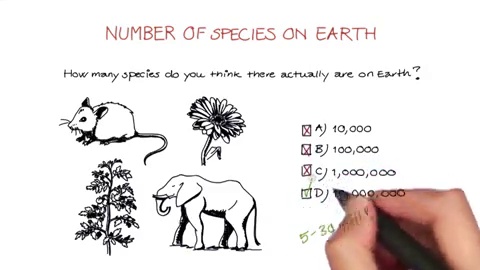 NUMBER OF SPECIES ON EARTH
How many species do you think there actually are on Earth?
A) 10,000
B) 100,000
C) 1,000,000
D) 000,000
5-30